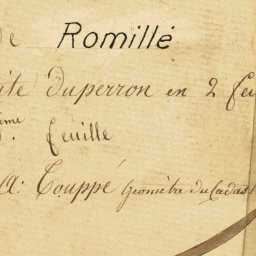 de Romillé
ite Duperron en 2 feu
ème feuille
A: Touppé Géomètre du Cadast